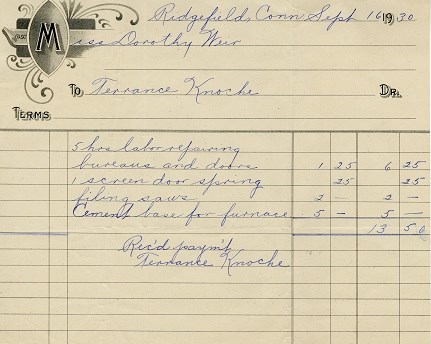 Ridgefield, Conn Sept 16 1930
Miss Dorothy Weir
To Terrance Knoche Dr.
Terms
5 hrs labor repairing
bureaus and doors 1 25 6 25
1 screen door spring 25 25
filing saws 2 — 2 —
Cement base for furnace 5 — 5 —
13 50
Rec'd paym't
Terrance Knoche